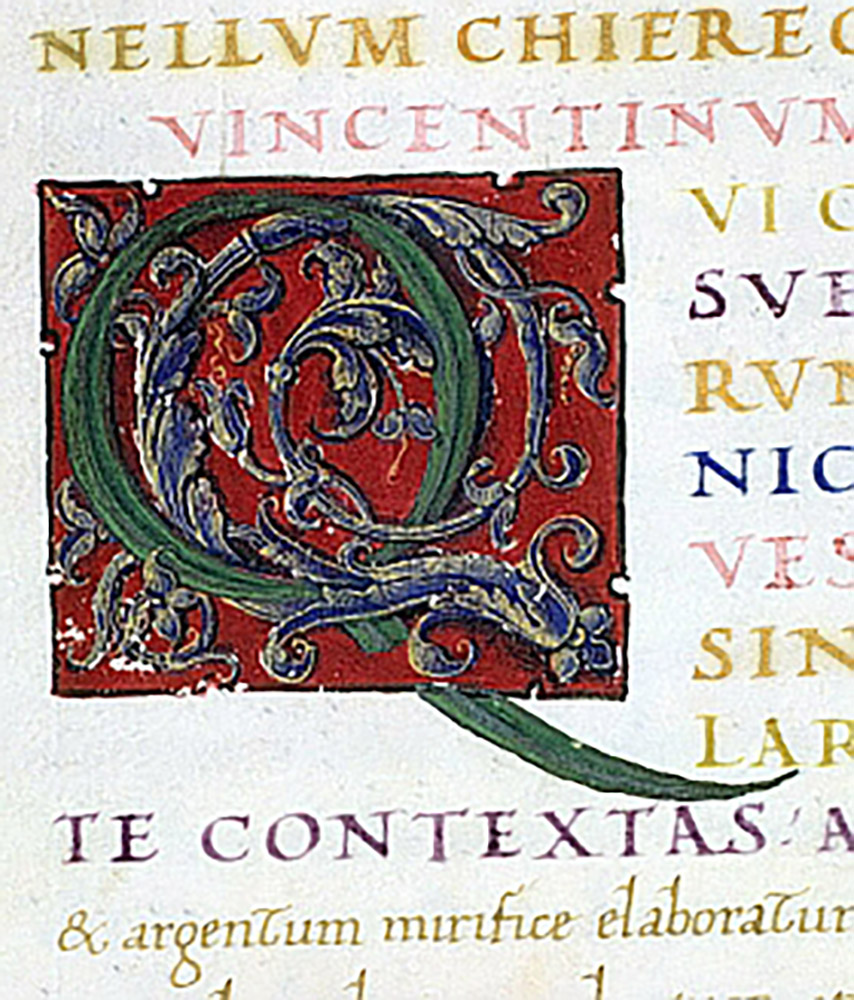 NELLVM CHIEREC
VINCENTINVM
Q
VI C
SVE
RVN
NIC
VES
SIN
LAR
TE CONTEXTAS: A
& argentum mirifice elaboratur